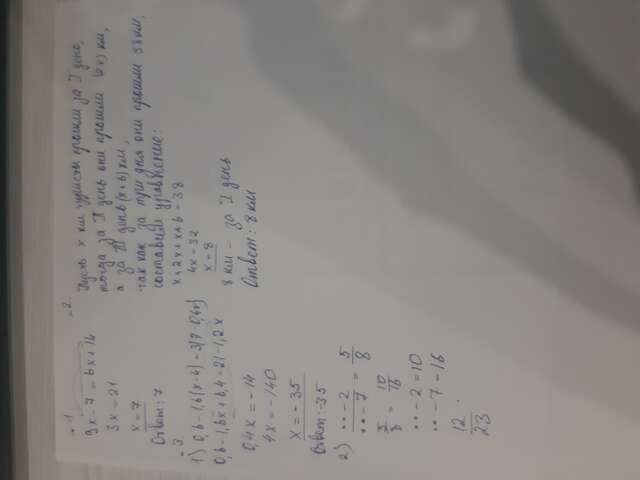 №1
9x - 7 = 6x + 14
3x = 21
x = 7
Ответ: 7
№2.
Пусть x км туристы прошли за I день,
тогда за II день они прошли (2x) км,
а за III день (x + 6) км,
так как за три дня они прошли 38 км,
составим уравнение:
x + 2x + x + 6 = 38
4x = 32
x = 8
8 км - за I день
Ответ: 8 км
3
1) 0,6 - 1,6(x - 4) = 3(7 - 0,4x)
0,6 - 1,6x + 6,4 = 21 - 1,2x
0,4x = -14
4x = -140
x = -35
Ответ: -35
2) ...-2 / ...-7 = 5/8
5/8 = 10/16
...-2 = 10
...-7 = 16
12
23